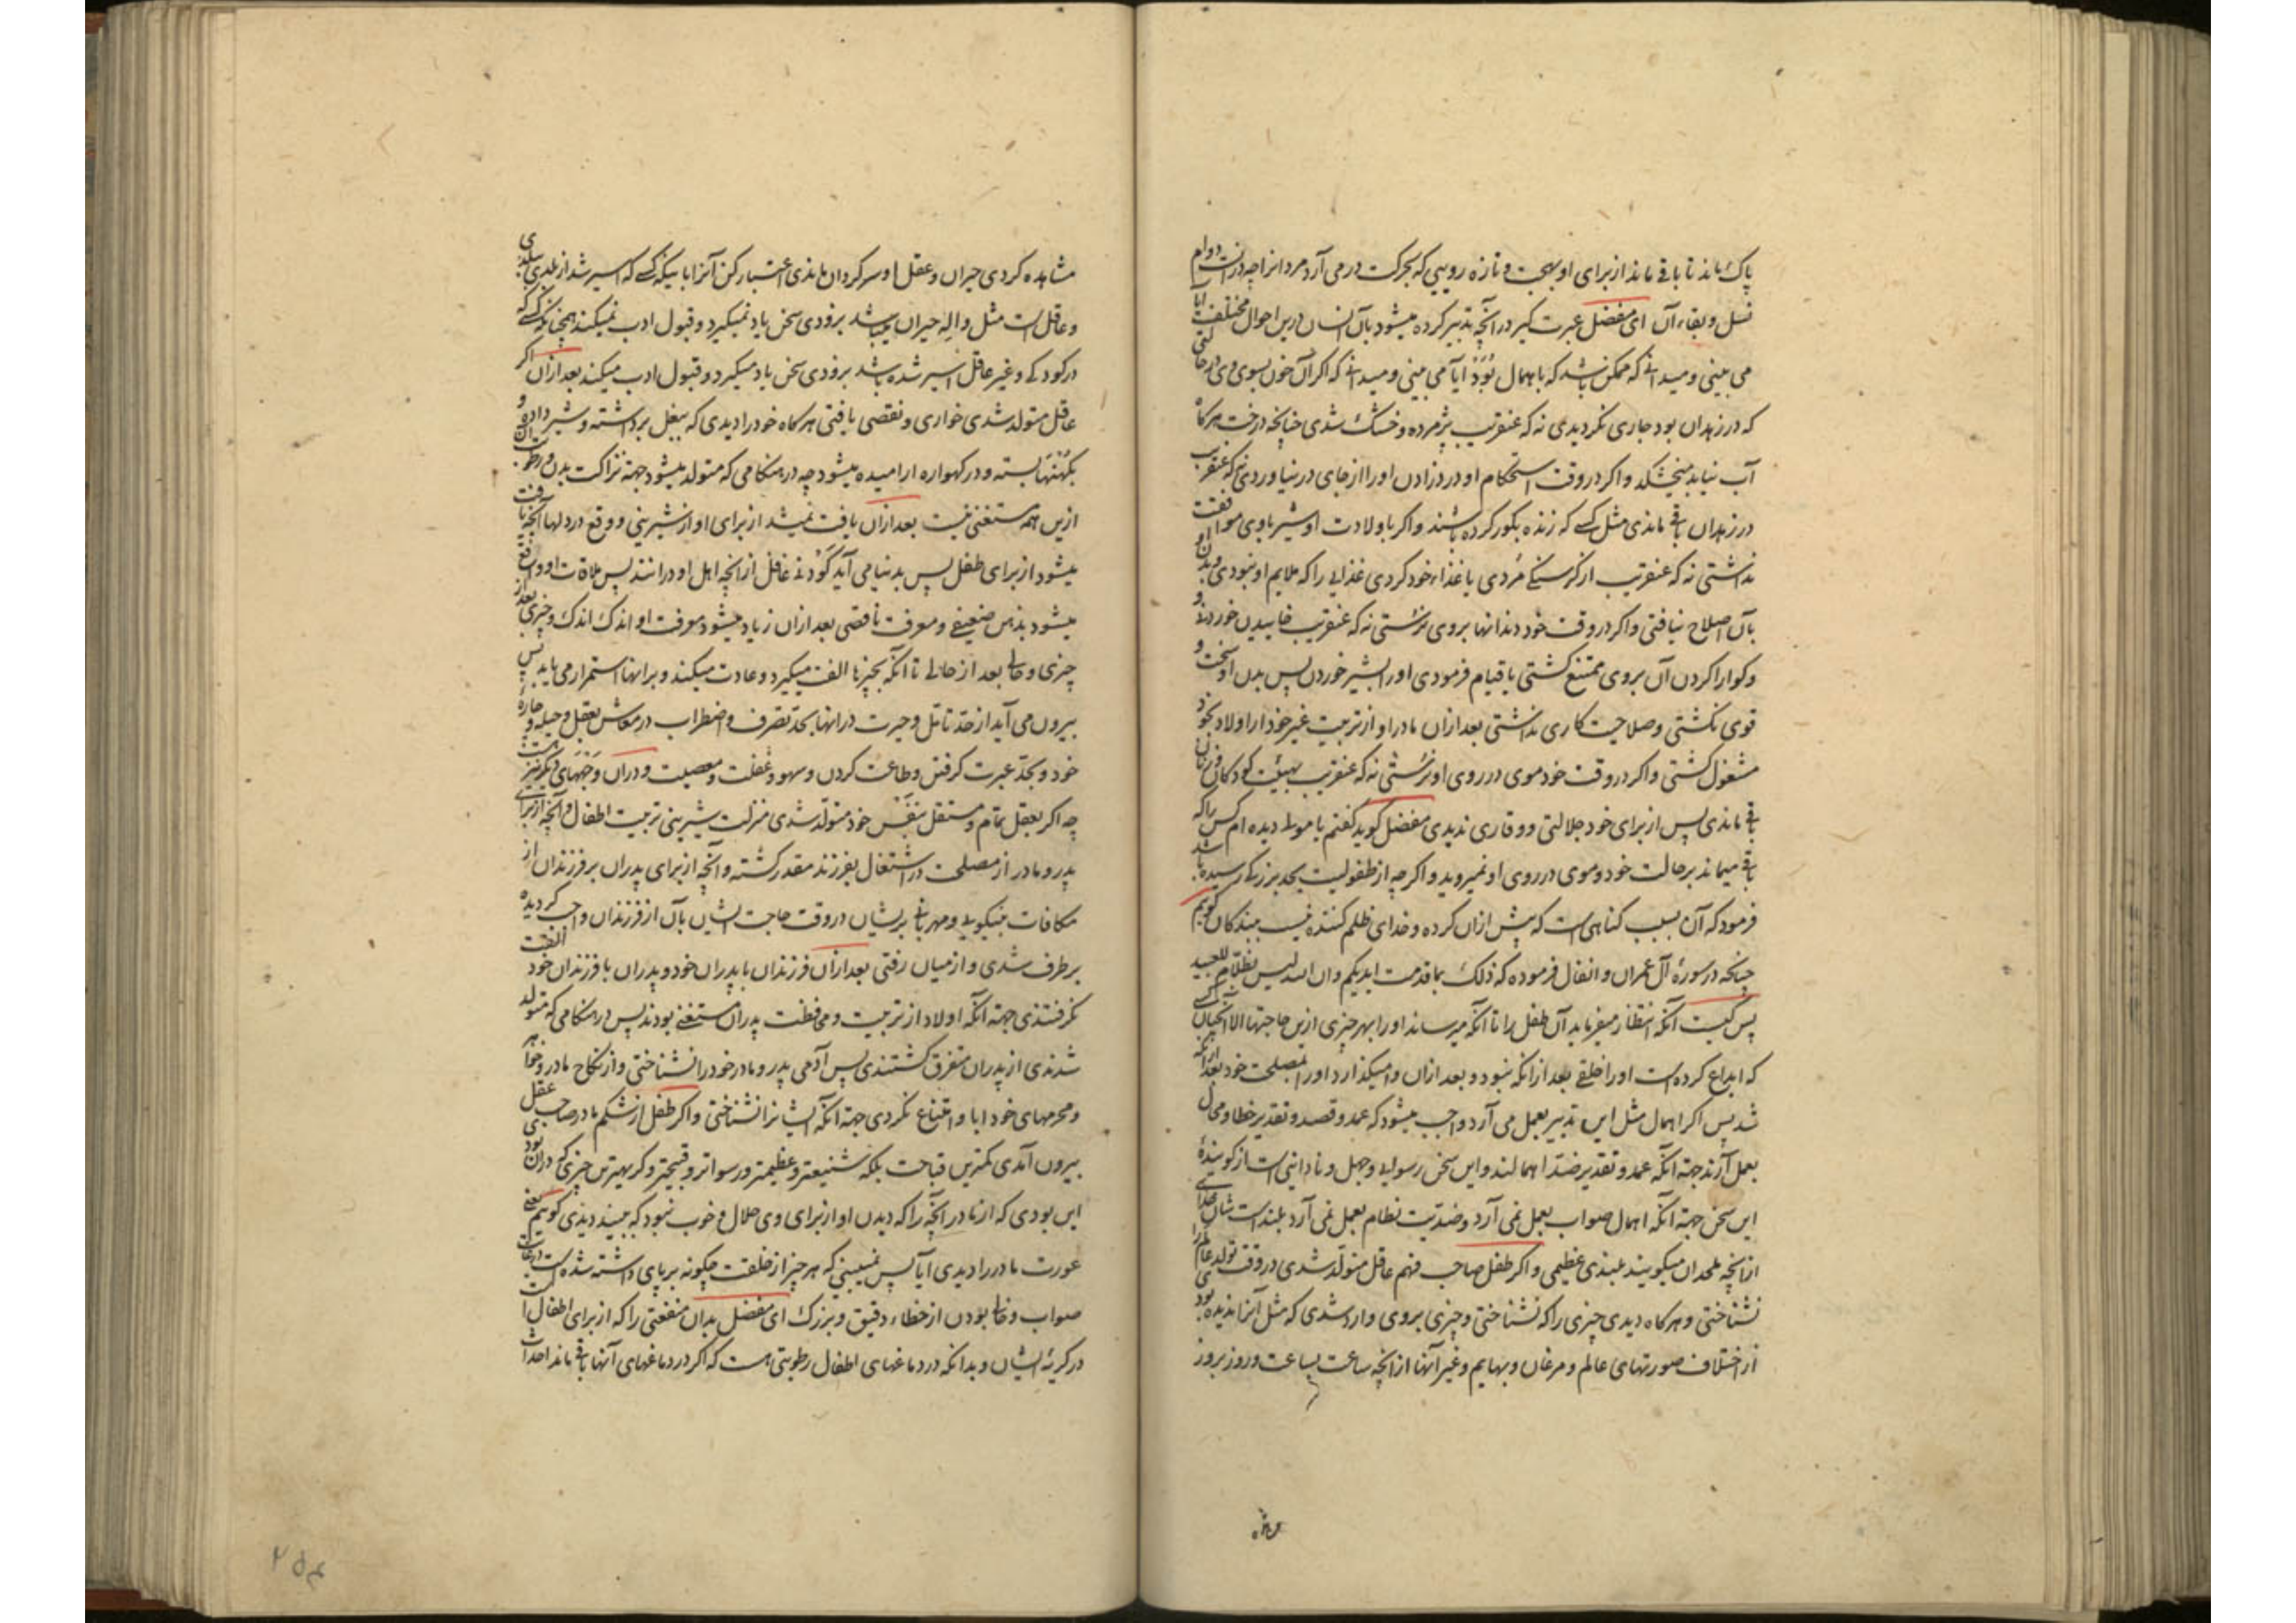 پاک ماند تا باقی ماند از برای او بهجت و تازه رویی که بحرکت در می آرد مردانرا چه در انست دوام
نسل و بقاء آن ای مفضل عبرت گیر در آنچه تدبیر کرده میشود بآن انسان درین احوال مختلف آیا
می بینی و میدانی که ممکن باشد که باهمال بُوَد آیا می بینی و میدانی که اگر آن خون بسوی وی در حالتی
که در زهدان بود جاری نگردیدی نه که عنقریب پژمرده و خشک شدی چنانچه درخت هرگاه
آب نیابد میخشکد و اگر در وقت استحکام او درد زادن او را از جای در نیاوردی نه که عنقریب
در زهدان باقی ماندی مثل کسی که زنده بگور کرده باشند و اگر با ولادت او شیر با وی موافقت
نداشتی نه که عنقریب از گرسنگی مُردی یا غذاء خود کردی غذایی را که ملایم او نبودی و بدن او
بآن اصلاح نیافتی و اگر در وقت خود دندانها بر وی نرُستی نه که عنقریب خاییدن خوردنی و
گوارا کردن آن بر وی ممتنع گشتی یا قیام فرمودی او را بشیر خوردن پس بدن او سخت و
قوی نگشتی و صلاحیت کاری نداشتی بعد ازان مادر او از تربیت غیر خود از اولاد بخود
مشغول گشتی و اگر در وقت خود موی در روی او نرُستی نه که عنقریب بهیئت کودکان و زنان
باقی ماندی پس از برای خود جلالتی و وقاری ندیدی مفضل گوید گفتم یا مولی دیده ام کس را که
باقی میماند بر حالت خود و موی در روی او نمیروید و اگر چه از طفولیت بحد بزرگی رسیده باشد
فرمود که آن بسبب گناهی است که پیش ازان کرده و خدای ظلم کننده نیست ببندگان گویم
چنانچه در سورهٔ آل عمران و انفال فرموده که ذلک بما قدمت ایدیکم و ان الله لیس بظلّام للعبید
پس کیست آنکه انتظار میفرماید آن طفل را تا آنکه میرساند او را بهر چیزی ازین حاجتها الا آنچنان کسی
که ابداع کرده است او را خلقی بعد ازانکه نبود و بعد ازان وا میگذارد او را بمصلحت خود بعد ازانکه
شد پس اگر اهمال مثل این تدبیر بعمل می آرد واجب میشود که عمد و قصد و تقدیر خطا و محال
بعمل آرند جهة آنکه عمد و تقدیر ضدّ اهمالند و این سخن رسوایی و جهل و نادانی است از گویندهٔ
این سخن جهة آنکه اهمال صواب بعمل نمی آرد و ضدّیت نظام بعمل نمی آرد بلند است شان خدای
ازانچه ملحدان میگویند بلندی عظیمی و اگر طفل صاحب فهم عاقل متولّد شدی در وقت تولد عالم را
نشناختی و هرگاه دیدی چیزی را که نشناختی و چیزی بر وی وارد شدی که مثل آنرا ندیده بودی
از اختلاف صورتهای عالم و مرغان و بهایم و غیر آنها ازانچه ساعت بساعت و روز بروز
مشاهده کردی حیران و عقل او سرگردان ماندی اعتبار کن آنرا باینکه کسی که اسیر شد از بلدی ببلدی
و عاقل است مثل واله حیران میباشد بزودی سخن یاد نمیگیرد و قبول ادب نمیکند همچنانکه کسی که
در کودکی و غیر عاقل اسیر شده باشد بزودی سخن یاد میگیرد و قبول ادب میکند بعد ازان اگر
عاقل متولد شدی خواری و نقصی یافتی هرگاه خود را دیدی که ببغل برداشته و شیر داده و
بکهنها بسته و در گهواره ارامیده میشود چه در هنگامی که متولد میشود جهة نزاکت بدن و رطوبت آن
ازین همه مستغنی نیست بعد ازان یافت نمیشد از برای او از شیرینی و وقع در دلها آنچه یافت
میشود از برای طفل پس بدنیا می آید کَودَن غافل ازانچه اهل او در انند پس ملاقات او واقع
میشود بذهن ضعیفی و معرفت ناقصی بعد ازان زیاد میشود معرفت او اندک اندک و چیزی بعد از
چیزی و حالی بعد از حالی تا آنکه بچیزها الفت میگیرد و عادت میکند و بر انها استمرار می یابد پس
بیرون می آید از حدّ تامّل و حیرت در انها بحدّ تصرف و اضطراب در معاش بعقل و حیله و چارهٔ
خود و بحدّ عبرت گرفتن و طاعت کردن و سهو و غفلت و معصیت و در ان وجههای دیگر نیز هست
چه اگر بعقل تمام و مستقل بنَفْس خود متولّد شدی منزلت شیرینی تربیت اطفال و آنچه از برای
پدر و مادر از مصلحت در اشتغال بفرزند مقدر گشته و آنچه از برای پدران بر فرزندان از
مکافات بنیکویی و مهربانی بریشان در وقت حاجت ایشان بآن از فرزندان واجب گردیده
برطرف شدی و از میان رفتی بعد ازان فرزندان با پدران خود و پدران با فرزندان خود الفت
نگرفتندی جهة آنکه اولاد از تربیت و محافظت پدران مستغنی بودند پس در هنگامی که متولد
شدندی از پدران متفرق گشتندی پس آدمی پدر و مادر خود را نشناختی و از نکاح مادر و خواهر
و محرمهای خود ابا و امتناع نکردی جهة آنکه ایشانرا نشناختی و اگر طفل از شکم مادر صاحب عقل
بیرون آمدی کمترین قباحت بلکه شنیعتر و عظیمتر و رسواتر و قبیحتر و کریهترین چیزی که در ان بودی
این بودی که از مادر آنچه را که دیدن او از برای وی حلال و خوب نبود که ببیند دیدی گویم یعنی
عورت مادر را دیدی آیا پس نمیبینی که هر چیز از خلقت چگونه بر پای داشته شده است در غایت
صواب و خالی بودن از خطاء دقیق و بزرگ ای مفضل بدان منفعتی را که از برای اطفال است
در گریهٔ ایشان و بدانکه در دماغهای اطفال رطوبتی هست که اگر در دماغهای آنها باقی ماند احداث